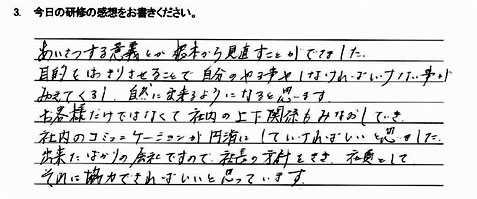 3. 今日の研修の感想をお書きください。
あいさつする意義とか根本から見直すことができました。
目的をはっきりさせることで自分のやる事やしなければいけない事が
みえてくるし、自然に出来るようになると思います。
お客様だけではなくて社内の上下関係もみなおしていき、
社内のコミュニケーションが円滑にしていければいいと思いました。
出来たばかりの会社ですので、社長の方針をきき、社員として
それに協力できればいいと思っています。